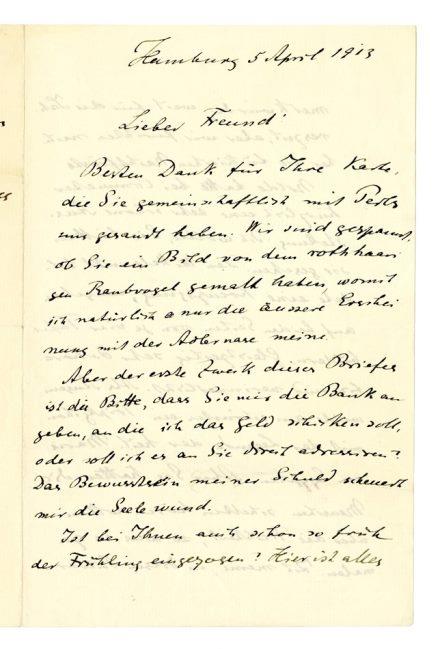 Hamburg 5 April 1913
Lieber Freund!
Besten Dank für Ihre Karte,
die Sie gemeinschaftlich mit Perls
uns gesandt haben. Wir sind gespannt,
ob Sie ein Bild von dem rothhaari
gen Raubvogel gemalt haben, womit
ich natürlich nur die äussere Erschei
nung mit der Adlernase meine.
Aber der erste Zweck dieses Briefes
ist die Bitte, dass Sie mir die Bank an
geben, an die ich das Geld schicken soll,
oder soll ich es an Sie direct adressiren?
Das Bewusstsein meiner Schuld scheuert
mir die Seele wund.
Ist bei Ihnen auch schon so früh
der Frühling eingezogen? Hier ist alles